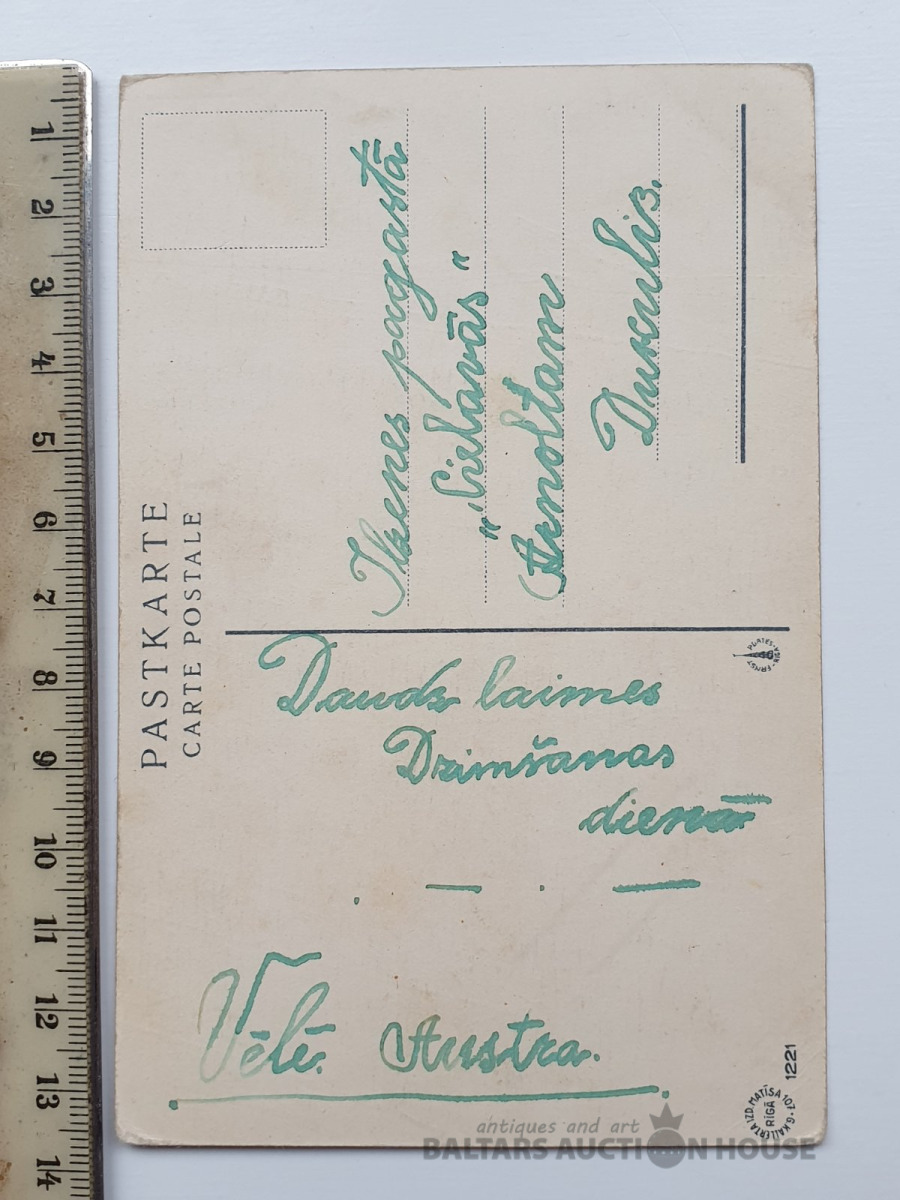 PASTKARTE
CARTE POSTALE
Ikenes pagastā
„Cielavās"
Arnoltam
Duxulis.
Daudz laimes
Dzimšanas
dienā
Vēlē Austra.
IZD. MATĪSA 107. G. KAILERTA
RĪGĀ
1221
antiques and art
BALTARS AUCTION HOUSE
1
2
3
4
5
6
7
8
9
10
11
12
13
14